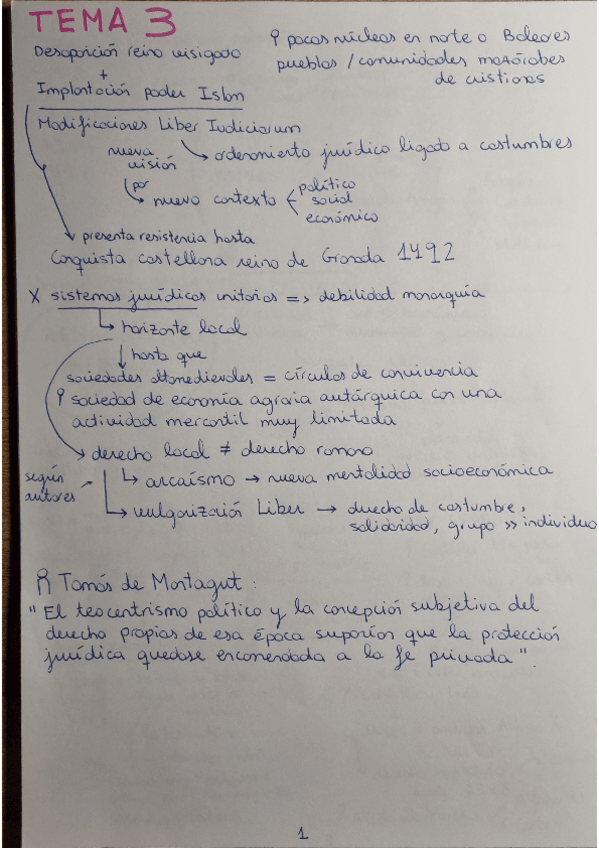 TEMA 3
Desaparición reino visigodo
+
Implantación poder Islam
♀ pocos núcleos en norte o Baleares
pueblos / comunidades mozárabes
de cristianos
Modificaciones Liber Iudiciorum
nueva visión
↳ ordenamiento jurídico ligado a costumbres
↳ por nuevo contexto < político
social
económico
↳ presenta resistencia hasta
Conquista castellana reino de Granada 1492
X sistemas jurídicos unitarios => debilidad monarquía
↳ horizonte local
↓ hasta que
sociedades altomedievales = círculos de convivencia
♀ sociedad de economía agraria autárquica con una
actividad mercantil muy limitada
↘ derecho local ≠ derecho romano
según autores
↳ arcaísmo → nueva mentalidad socioeconómica
↳ vulgarización Liber → derecho de costumbre,
solidaridad, grupo >> individuo
Tomás de Montagut :
"El teocentrismo político y la concepción subjetiva del
derecho propias de esa época suponían que la protección
jurídica quedase encomendada a la fe privada".
1